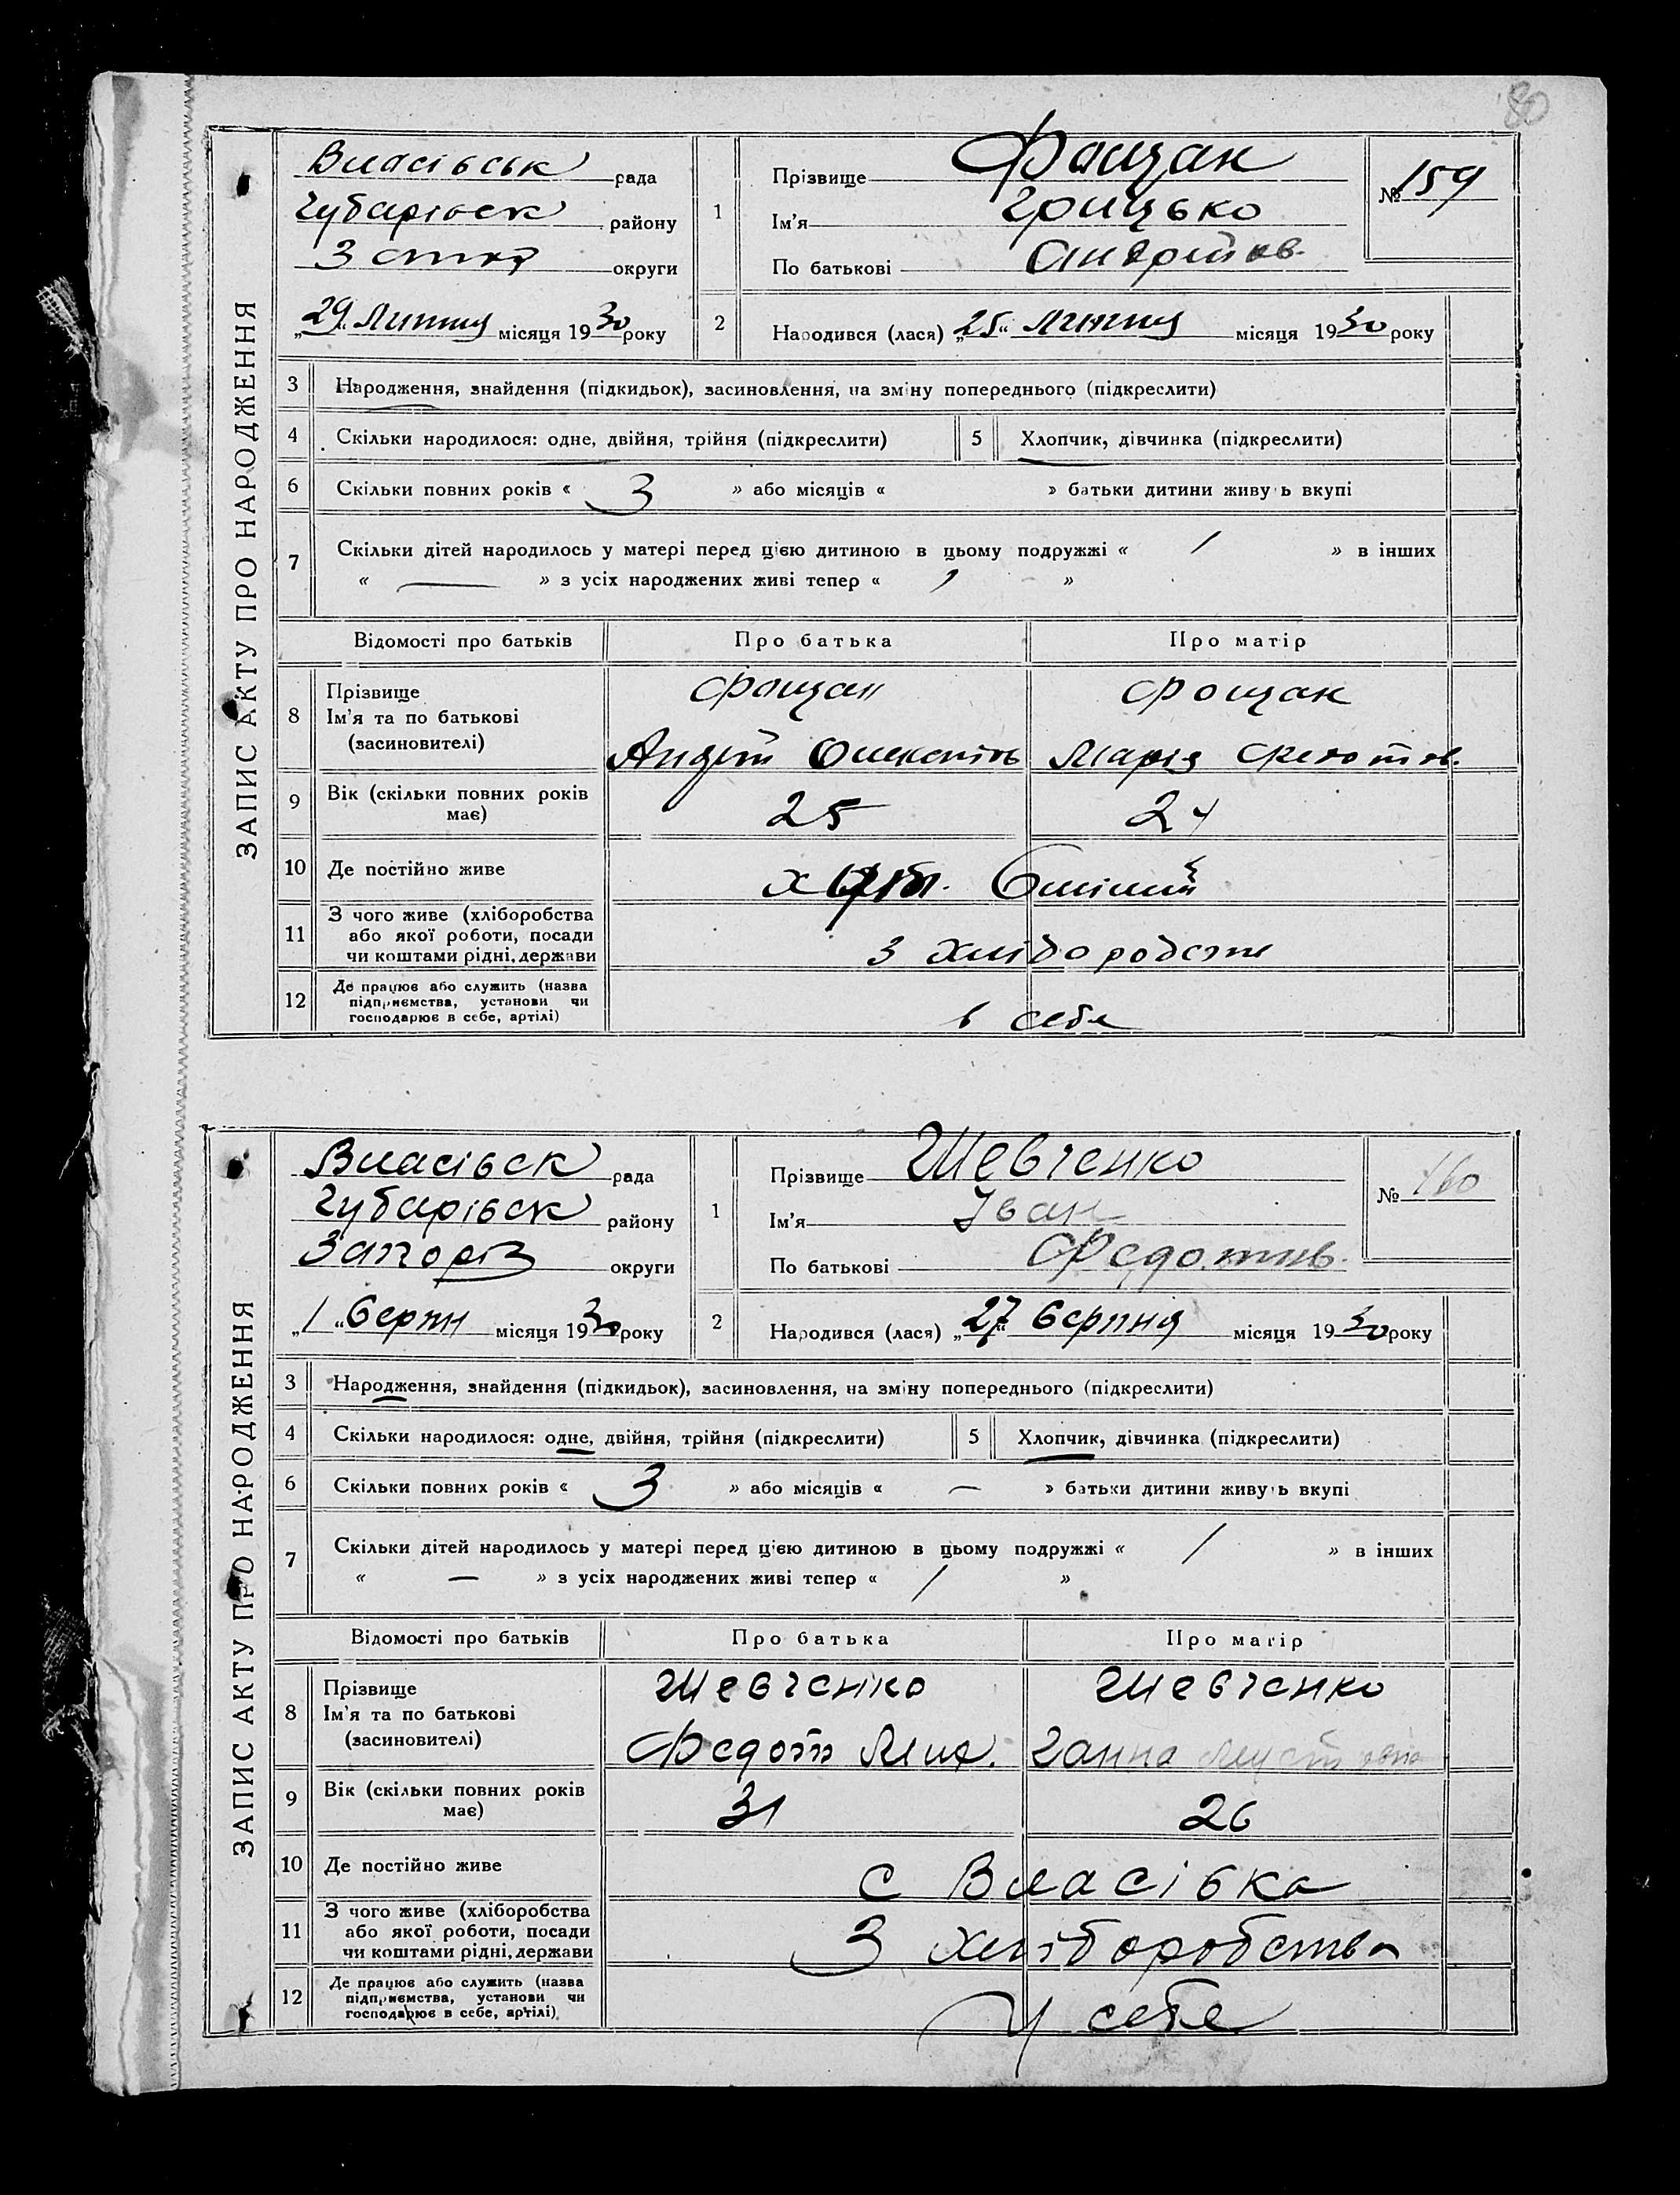 80
ЗАПИС АКТУ ПРО НАРОДЖЕННЯ
Власівськ рада
Чубарівськ району
округи
„29“ Липня місяця 1930 року
1 Прізвище Фощан
Ім'я Грицько
По батькові Андріїв.
№ 159
2 Народився (лася) „25“ Липня місяця 1930 року
3 Народження, знайдення (підкидьок), засиновлення, на зміну попереднього (підкреслити)
4 Скільки народилося: одне, двійня, трійня (підкреслити) 5 Хлопчик, дівчинка (підкреслити)
6 Скільки повних років « 3 » або місяців « » батьки дитини живуть вкупі
7 Скільки дітей народилось у матері перед цією дитиною в цьому подружжі « 1 » в інших
« — » з усіх народжених живі тепер « 1 »
Відомості про батьків Про батька Про матір
8 Прізвище Фощан Фощан
Ім'я та по батькові
(засиновителі) Андрій Марія
9 Вік (скільки повних років має) 25 24
10 Де постійно живе
11 З чого живе (хліборобства
або якої роботи, посади
чи коштами рідні, держави З хліборобств
12 Де працює або служить (назва
підприємства, установи чи
господарює в себе, артілі) в себе
ЗАПИС АКТУ ПРО НАРОДЖЕННЯ
Власівськ рада
Чубарівськ району
Запоріз округи
„1“ Серпн місяця 1930 року
1 Прізвище Шевченко
Ім'я Іван
По батькові Федотів.
№ 160
2 Народився (лася) „27“ Серпня місяця 1930 року
3 Народження, знайдення (підкидьок), засиновлення, на зміну попереднього (підкреслити)
4 Скільки народилося: одне, двійня, трійня (підкреслити) 5 Хлопчик, дівчинка (підкреслити)
6 Скільки повних років « 3 » або місяців « — » батьки дитини живуть вкупі
7 Скільки дітей народилось у матері перед цією дитиною в цьому подружжі « 1 » в інших
« — » з усіх народжених живі тепер « 1 »
Відомості про батьків Про батька Про матір
8 Прізвище Шевченко Шевченко
Ім'я та по батькові
(засиновителі) Федот Мих. Ганна
9 Вік (скільки повних років має) 31 26
10 Де постійно живе с Власівка
11 З чого живе (хліборобства
або якої роботи, посади
чи коштами рідні, держави З хліборобства
12 Де працює або служить (назва
підприємства, установи чи
господарює в себе, артілі) У себе